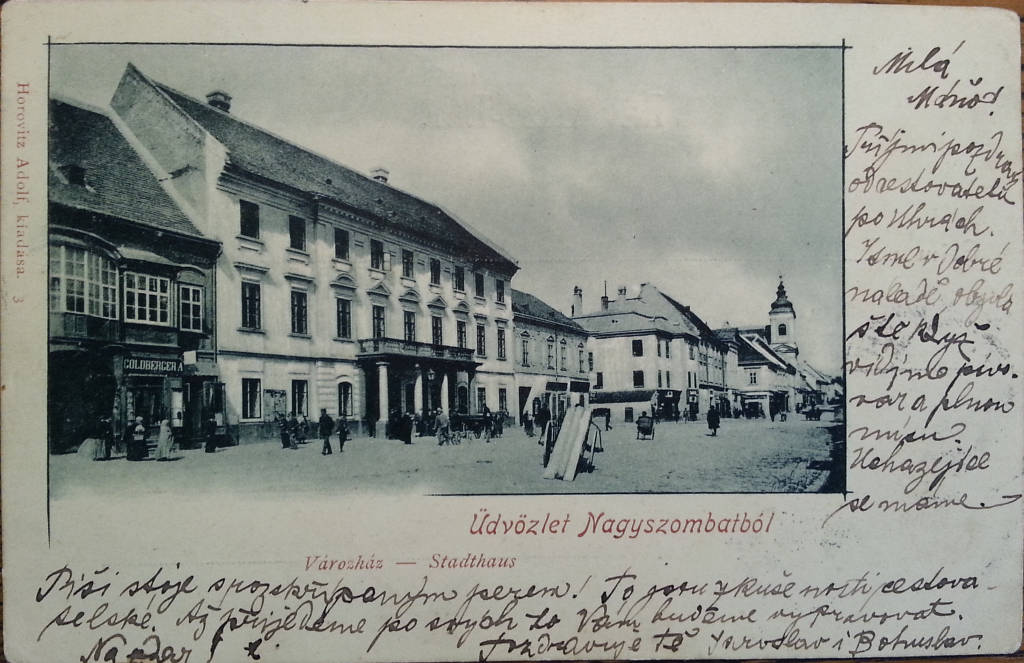 Horovitz Adolf, kiadása. 3
GOLDBERGER A
Üdvözlet Nagyszombatból
Városház — Stadthaus
Milá
Mářo!
Přijmi pozdrav
od cestovatelů
po Uhrách.
Jsme v dobré
náladě, obzvlá
ště když
vidíme pivo
var a plnou
mísu.
se máme.
Píši stoje s rozskřípaným perem! To jsou zkušenosti cestova-
telské. Až přijedeme po svých to Vám budeme vypravovat.
Na zdar! Pozdravuje Tě Jaroslav i Bohuslav.